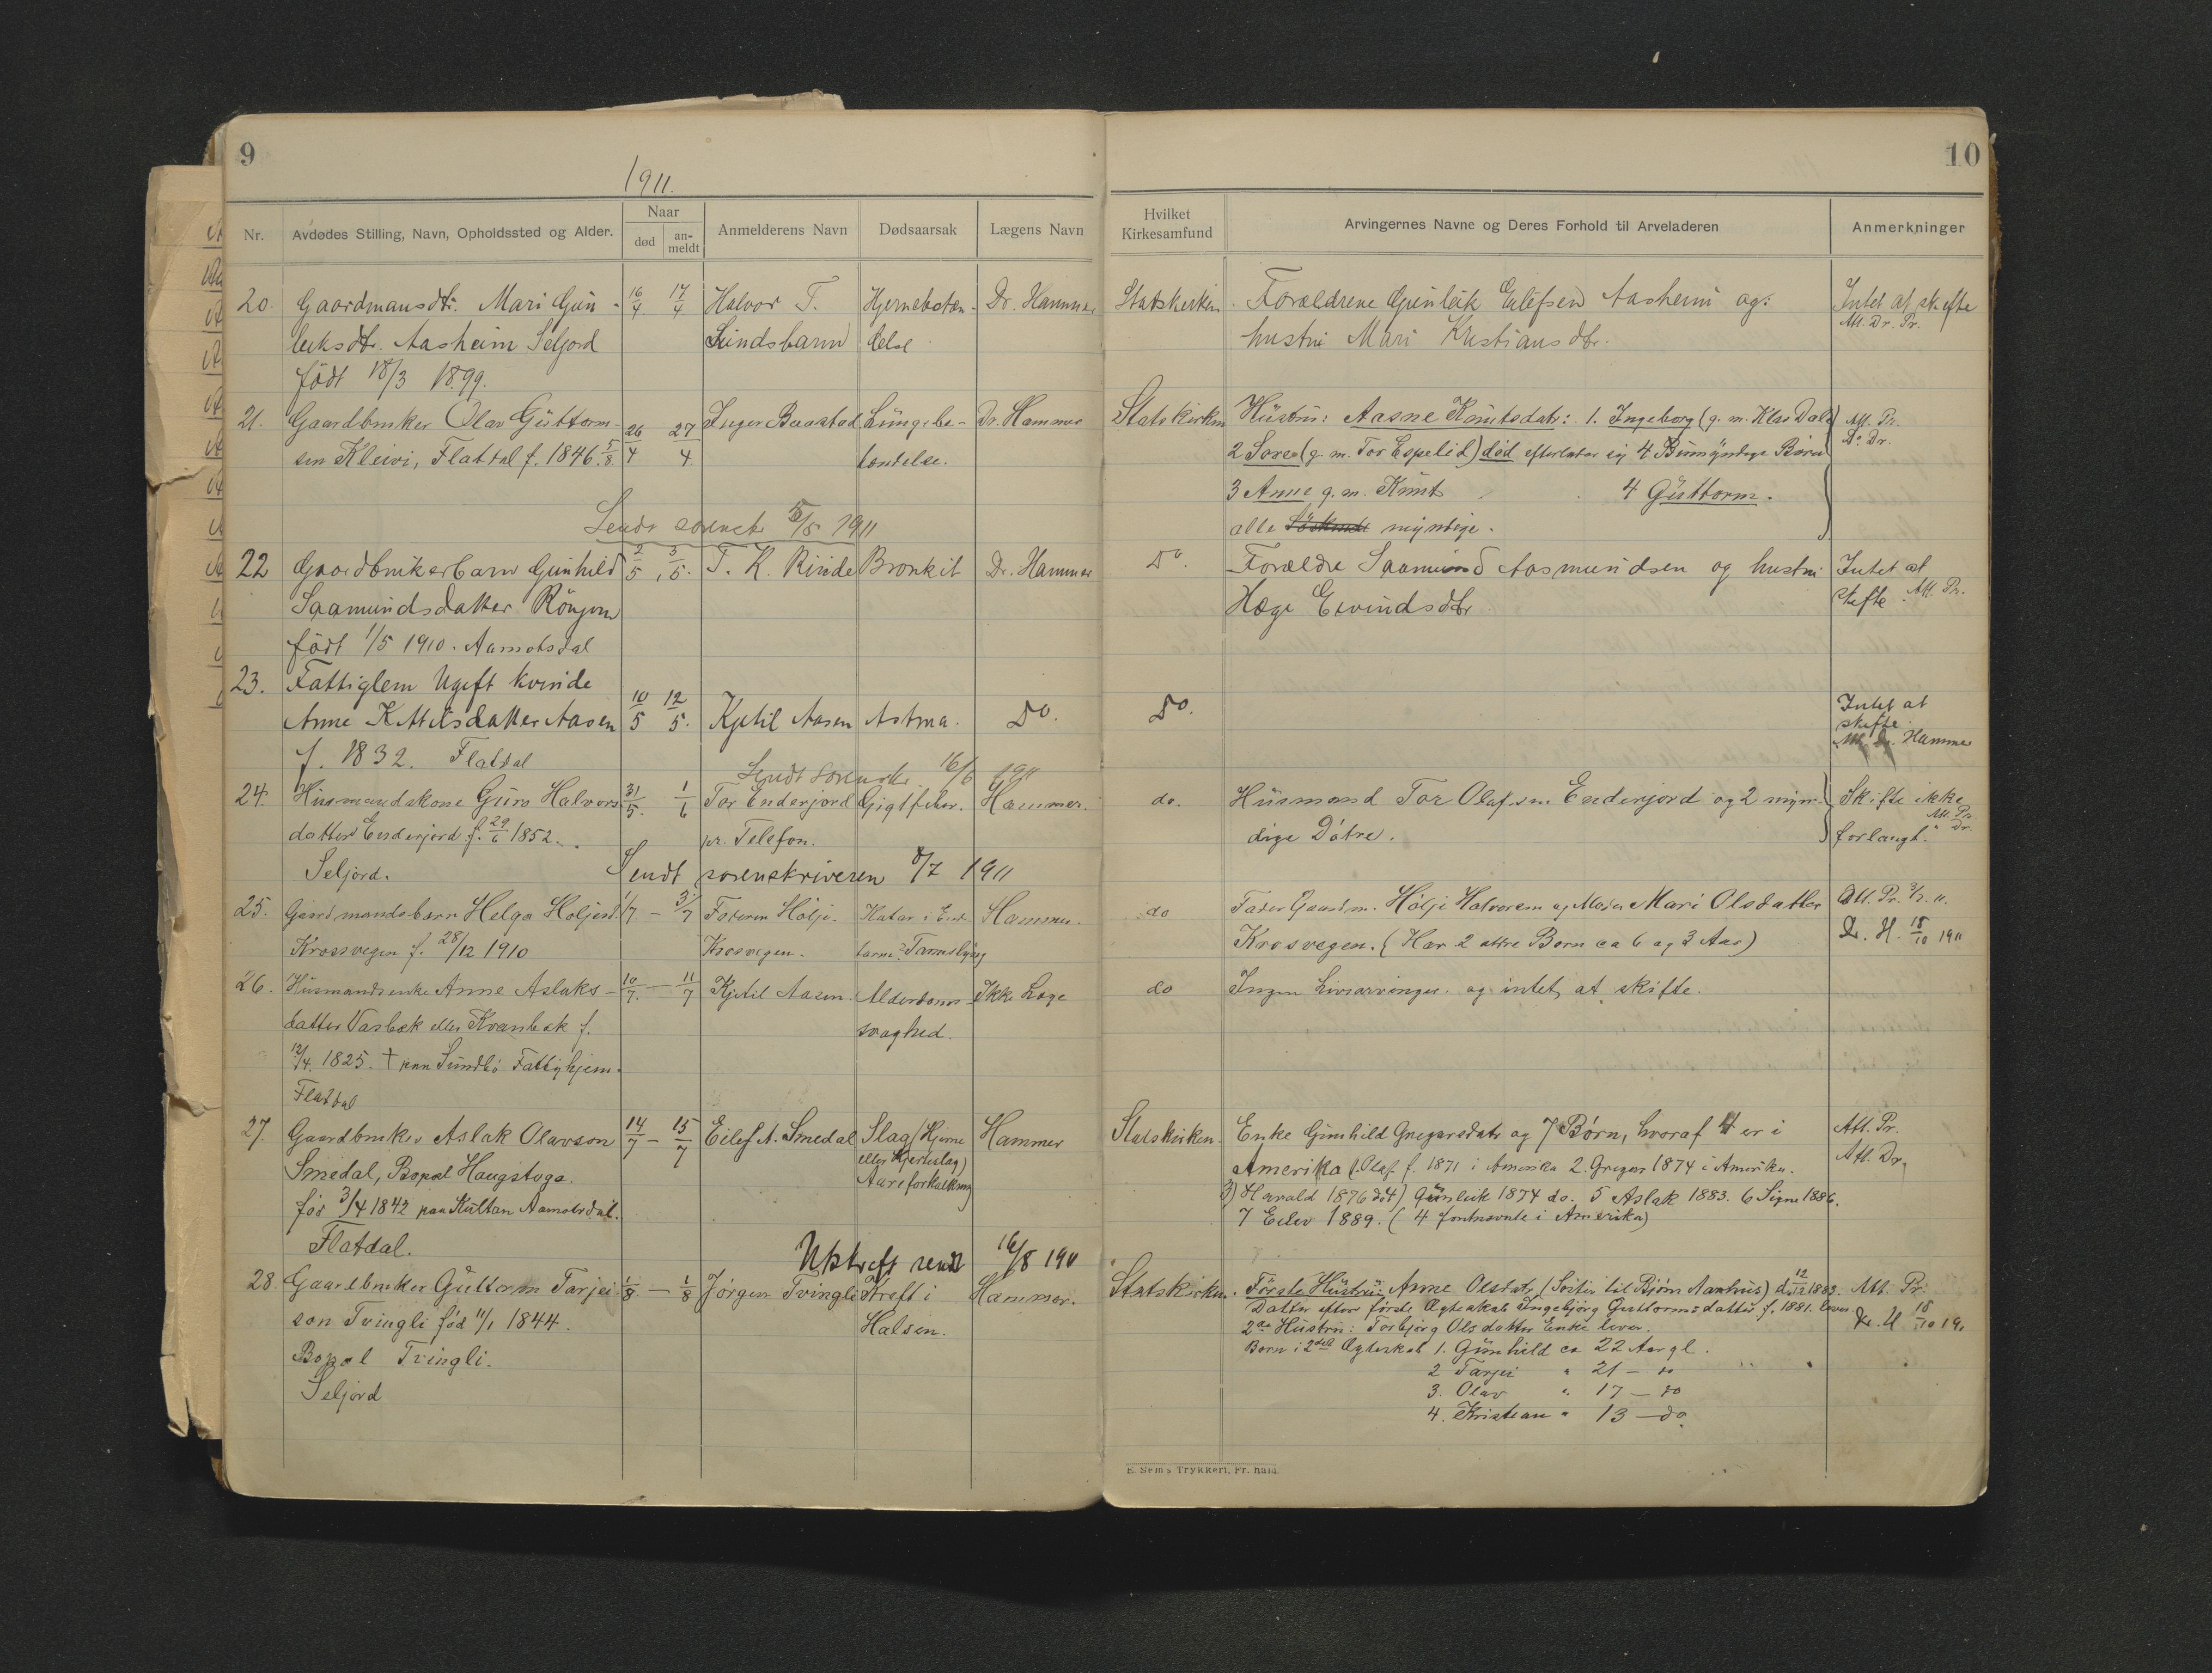 9
10
1911.
Nr.
Avdødes Stilling, Navn, Opholdssted og Alder.
Naar
død
an-
meldt
Anmelderens Navn
Dødsaarsak
Lægens Navn
Hvilket
Kirkesamfund
Arvingernes Navne og Deres Forhold til Arveladeren
Anmerkninger
20. Gaardmansdtr. Mari Gun- 16/4 17/4 Halvor T. Hjernebetæn- Dr. Hammer Statskirken. Forældrene Gunleik Eilefsen Aasheim og Intet at skifte
leiksdtr. Aasheim Seljord Lindsbarm delse. hustru Mari Kristiansdtr. Att. Dr. Pr.
født 18/3 1899.
21. Gaardbruker Olav Guttorm- 26/4 27/4 Inger Baastad Lungebe- Dr. Hammer Statskirken Hustru: Aasne Knutsdatr: 1. Ingeborg (g. m. Klas Dale) Att. Pr.
sen Kleivi, Flatdal f. 1846 5/8. tændelse. 2 (g. m. Tor Espelid) død efterlater sig 4 Børn Do Dr.
3 Anne g. m. Knut 4 Guttorm.
Sendt sorenskr 5/5 1911
alle myndige.
22 Gaardbrukerbarn Gunhild 2/5 3/5. T. K. Rinde Bronkit Dr. Hammer Do. Forældre Saamund Aasmundsen og hustru Intet at
Saamundsdatter Röngen Hæge Eivindsdtr skifte Att. Pr.
født 1/5 1910. Aamotsdal
23. Fattiglem Ugift kvinde
Anne Kittilsdatter Aasen 10/5 12/5. Kjetil Aasen Astma. Do. Do. Intet at
skifte.
Att. Dr. Hammer
f. 1832. Flatdal
Sendt sorenskr 16/6 1911
24. Husmandskone Guro Halvors 31/5. 1/6 Tor Enderjord Gigtfeber. Hammer. do. Husmand Tor Olafsen Enderjord og 2 myn- Skifte ikke
datter Enderjord f. 29/6 1852. pr. Telefon. dige Døtre. forlangt. Att. Pr.
" Dr.
Seljord. Sendt sorenskriveren 8/7 1911
25. Gaardmandsbarn Helga Holjesd. 1/7. — 3/7 Faderen Hølje Katar i Hammer. do Fader Gaardm. Hølje Halvorsen og Moder Mari Olsdatter Att. Pr. 3/7. 11.
Krossvegen f. 28/12 1910 Krosvegen. tarm Krosvegen. (Har 2 ældre Børn ca 6 og 3 Aar) Dr. H. 18/10 1911
26. Husmandsenke Anne Aslaks- 10/7. — 11/7 Kjetil Aasen. Alderdoms- Ikke Læge do Ingen Livsarvinger. og intet at skifte.
datter Vasbæk eller Kvanbæk f. svaghed.
12/4. 1825. † paa Sundbø Fattighjem.
Flatdal
27. Gaardbruker Aslak Olavson 14/7 — 15/7 Eilef A. Smedal Slag (Hjerne Hammer Statskirken. Enke Gunhild Gregarsdatr og 7 Børn, hvoraf 4 er i Att. Pr.
Smedal, Bopæl Haugstoga. eller Hjerteslag) Amerika (Olaf f. 1871 i Amerika 2. Gregar 1874 i Amerika. Att. Dr.
Aareforkalkning 3) Harald 1876 do 4) Gunleik 1874 do. 5 Aslak 1883. 6 Signe 1886.
fød 3/4 1842 paa Kultan Aamotsdal. 7 Eilev 1889. (4 førstnævnte i Amerika)
Flatdal. Utskrift sendt 16/8 1911
28. Gaardbruker Guttorm Tarjei- 1/8 — 1/8 Jørgen Tvingli Kræft i Hammer. Statskirken. Første Hustru: Anne Olsdatr. (Søster til Bjørn Aamhus) d. 1883. Att. Pr.
son Tvingli fød 11/1 1844. Halsen. Datter efter første Ægteskab Ingebjørg Guttormsdatter f. 1881. lever. Dr. H 18/10 1911
2den Hustru: Torbjørg Olsdatter Enke lever.
Bopæl Tvingli. Børn i 2det Ægteskab 1. Gunhild ca 22 Aar gl.
Seljord 2 Tarjei " 21 — do
3. Olav " 17 — do
4. Kristian " 13 — do.
E. Sem's Trykkeri, Fr. hald.